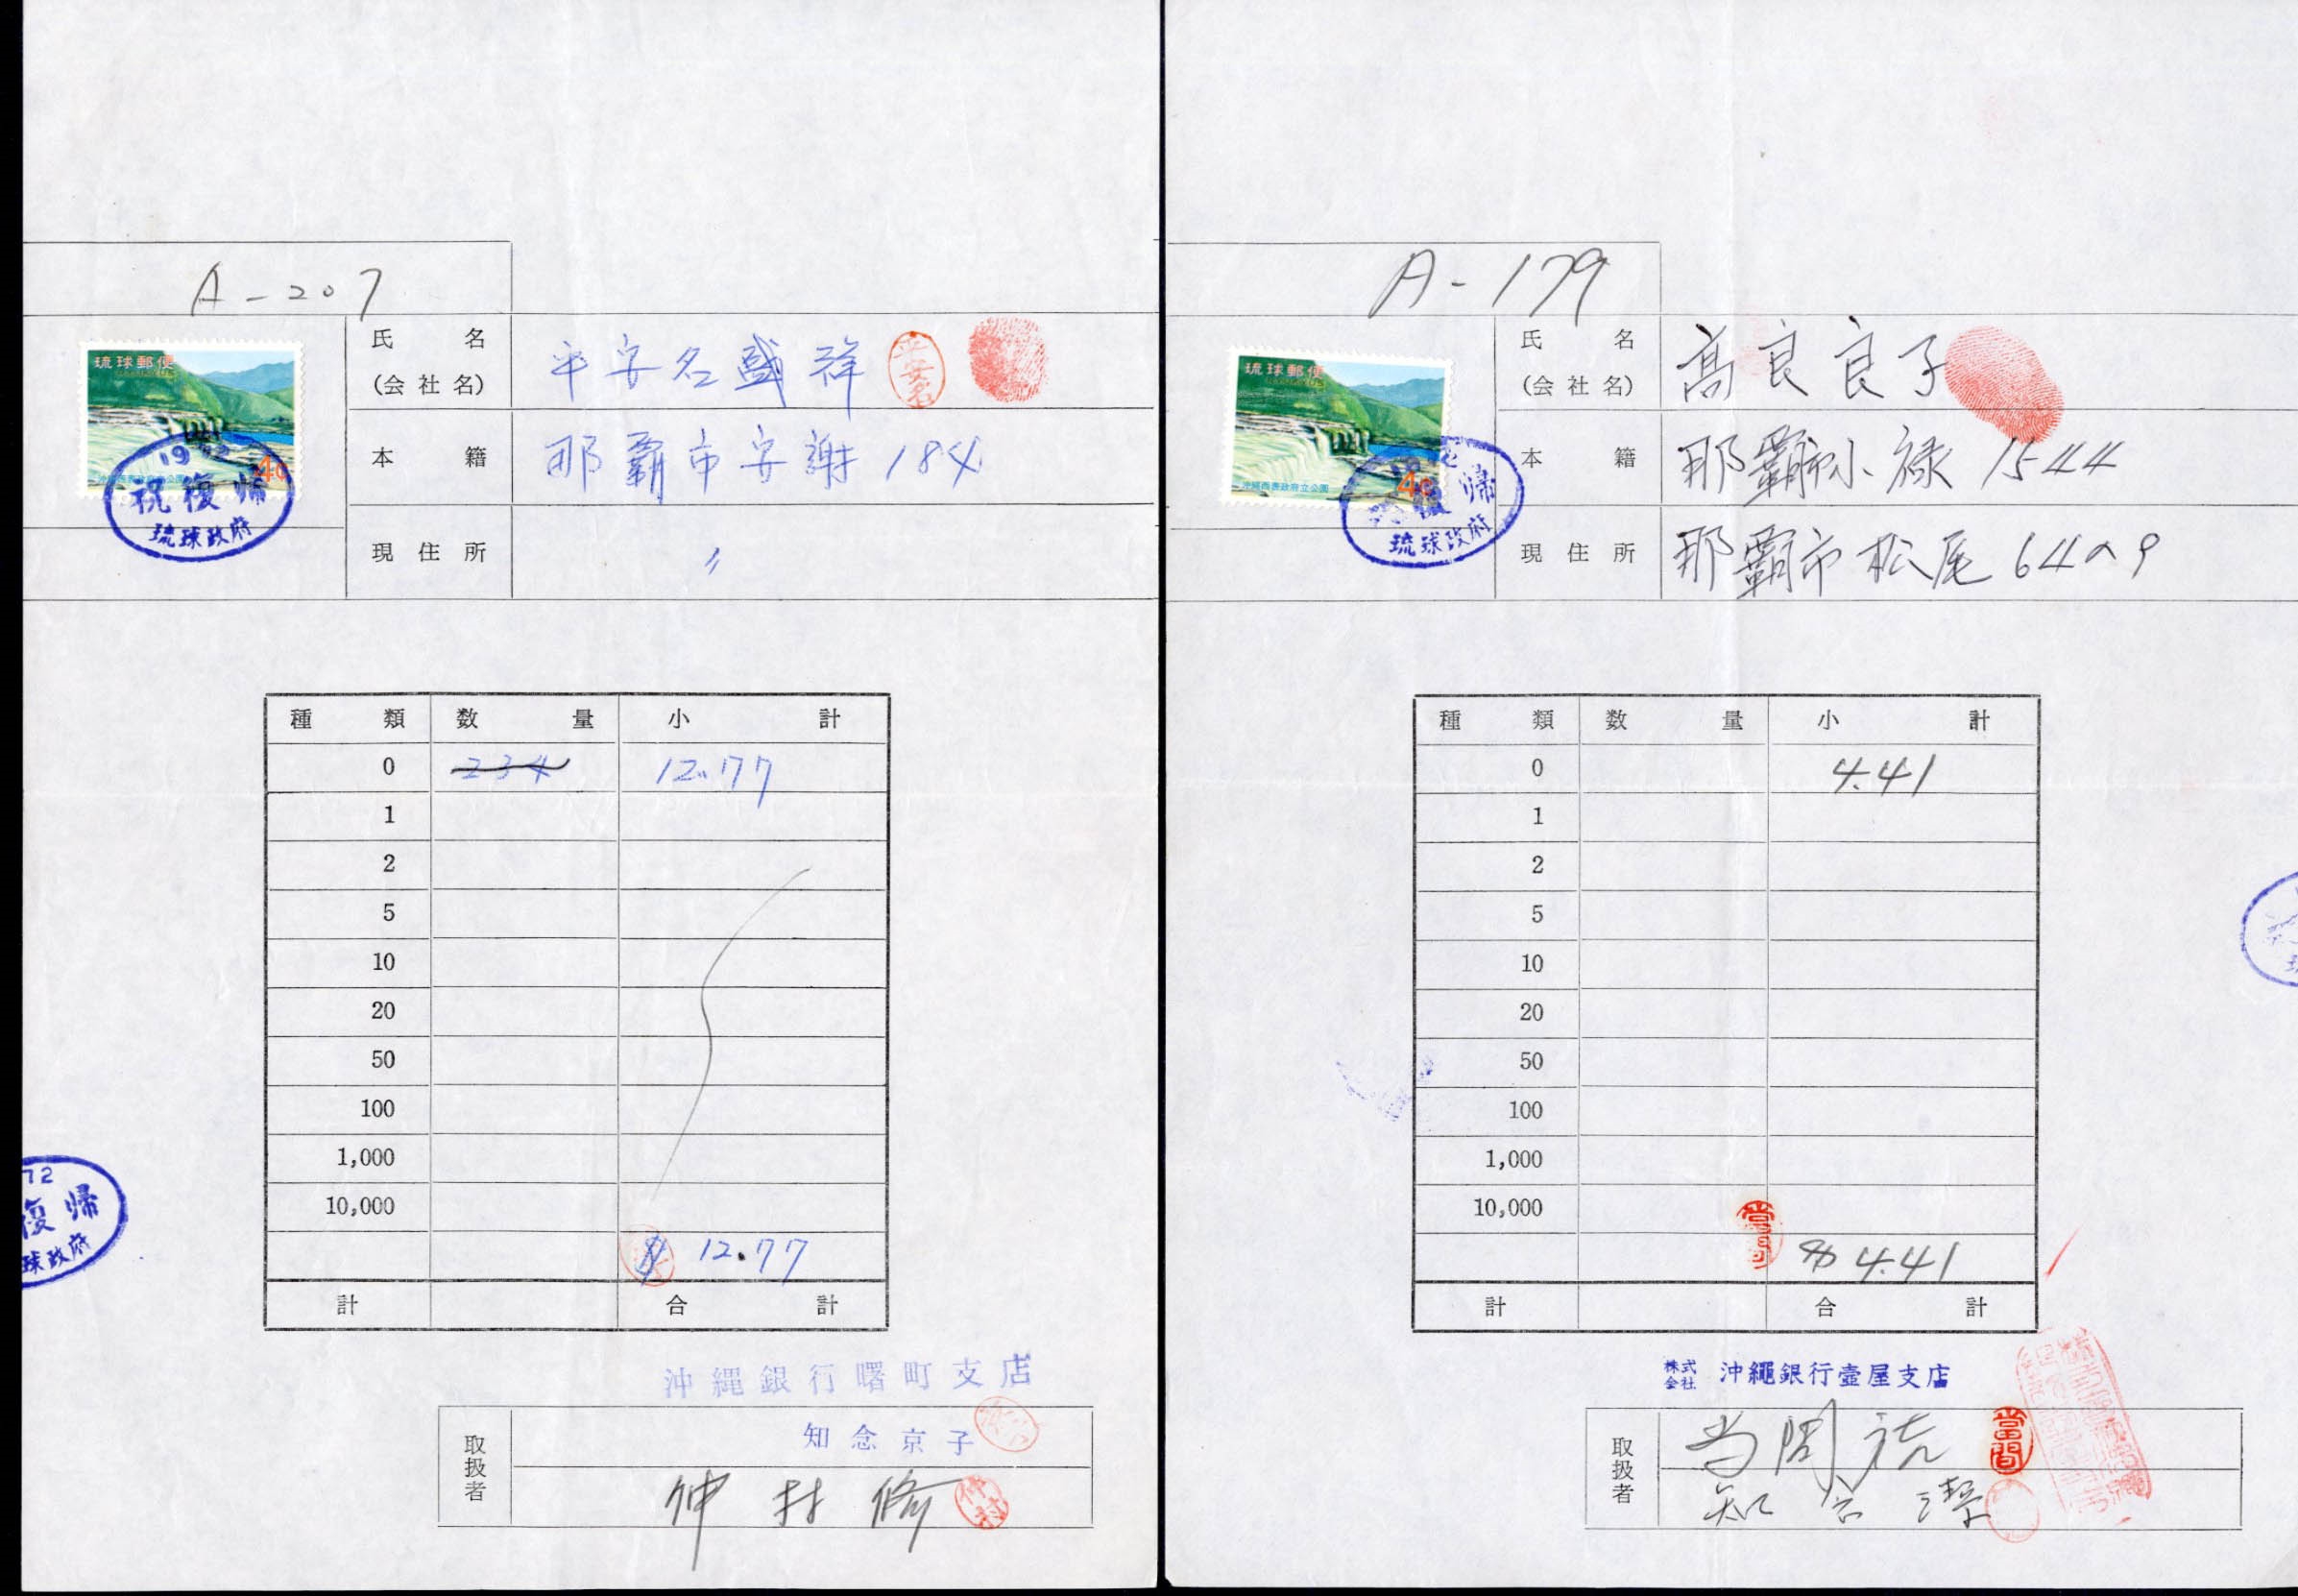 A-207
琉球郵便
4¢
1972
祝復帰
琉球政府
氏名
(会社名)
平安名盛祥
平安名
本籍
那覇市安謝184
現住所
〃
種類 数量 小計
0 234 12.77
1
2
5
10
20
50
100
1,000
10,000
$ 12.77
計 合計
72
復帰
球政府
沖縄銀行曙町支店
取扱者
知念京子
仲村修
仲村
A-179
琉球郵便
沖縄西表政府立公園
4¢
復帰
琉球政府
氏名
(会社名)
高良良子
本籍
那覇市小禄1544
現住所
那覇市松尾64の9
種類 数量 小計
0 4.41
1
2
5
10
20
50
100
1,000
10,000
當間
$ 4.41
計 合計
株式会社 沖繩銀行壼屋支店
取扱者
当間
當間